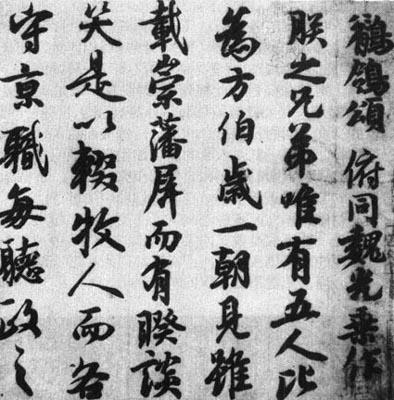 鶺鴒頌 俯同魏光乗作
朕之兄弟唯有五人比
為方伯歲一朝見雖
載崇藩屏而有睽談
笑是以輟牧人而各
守京職每聽政之